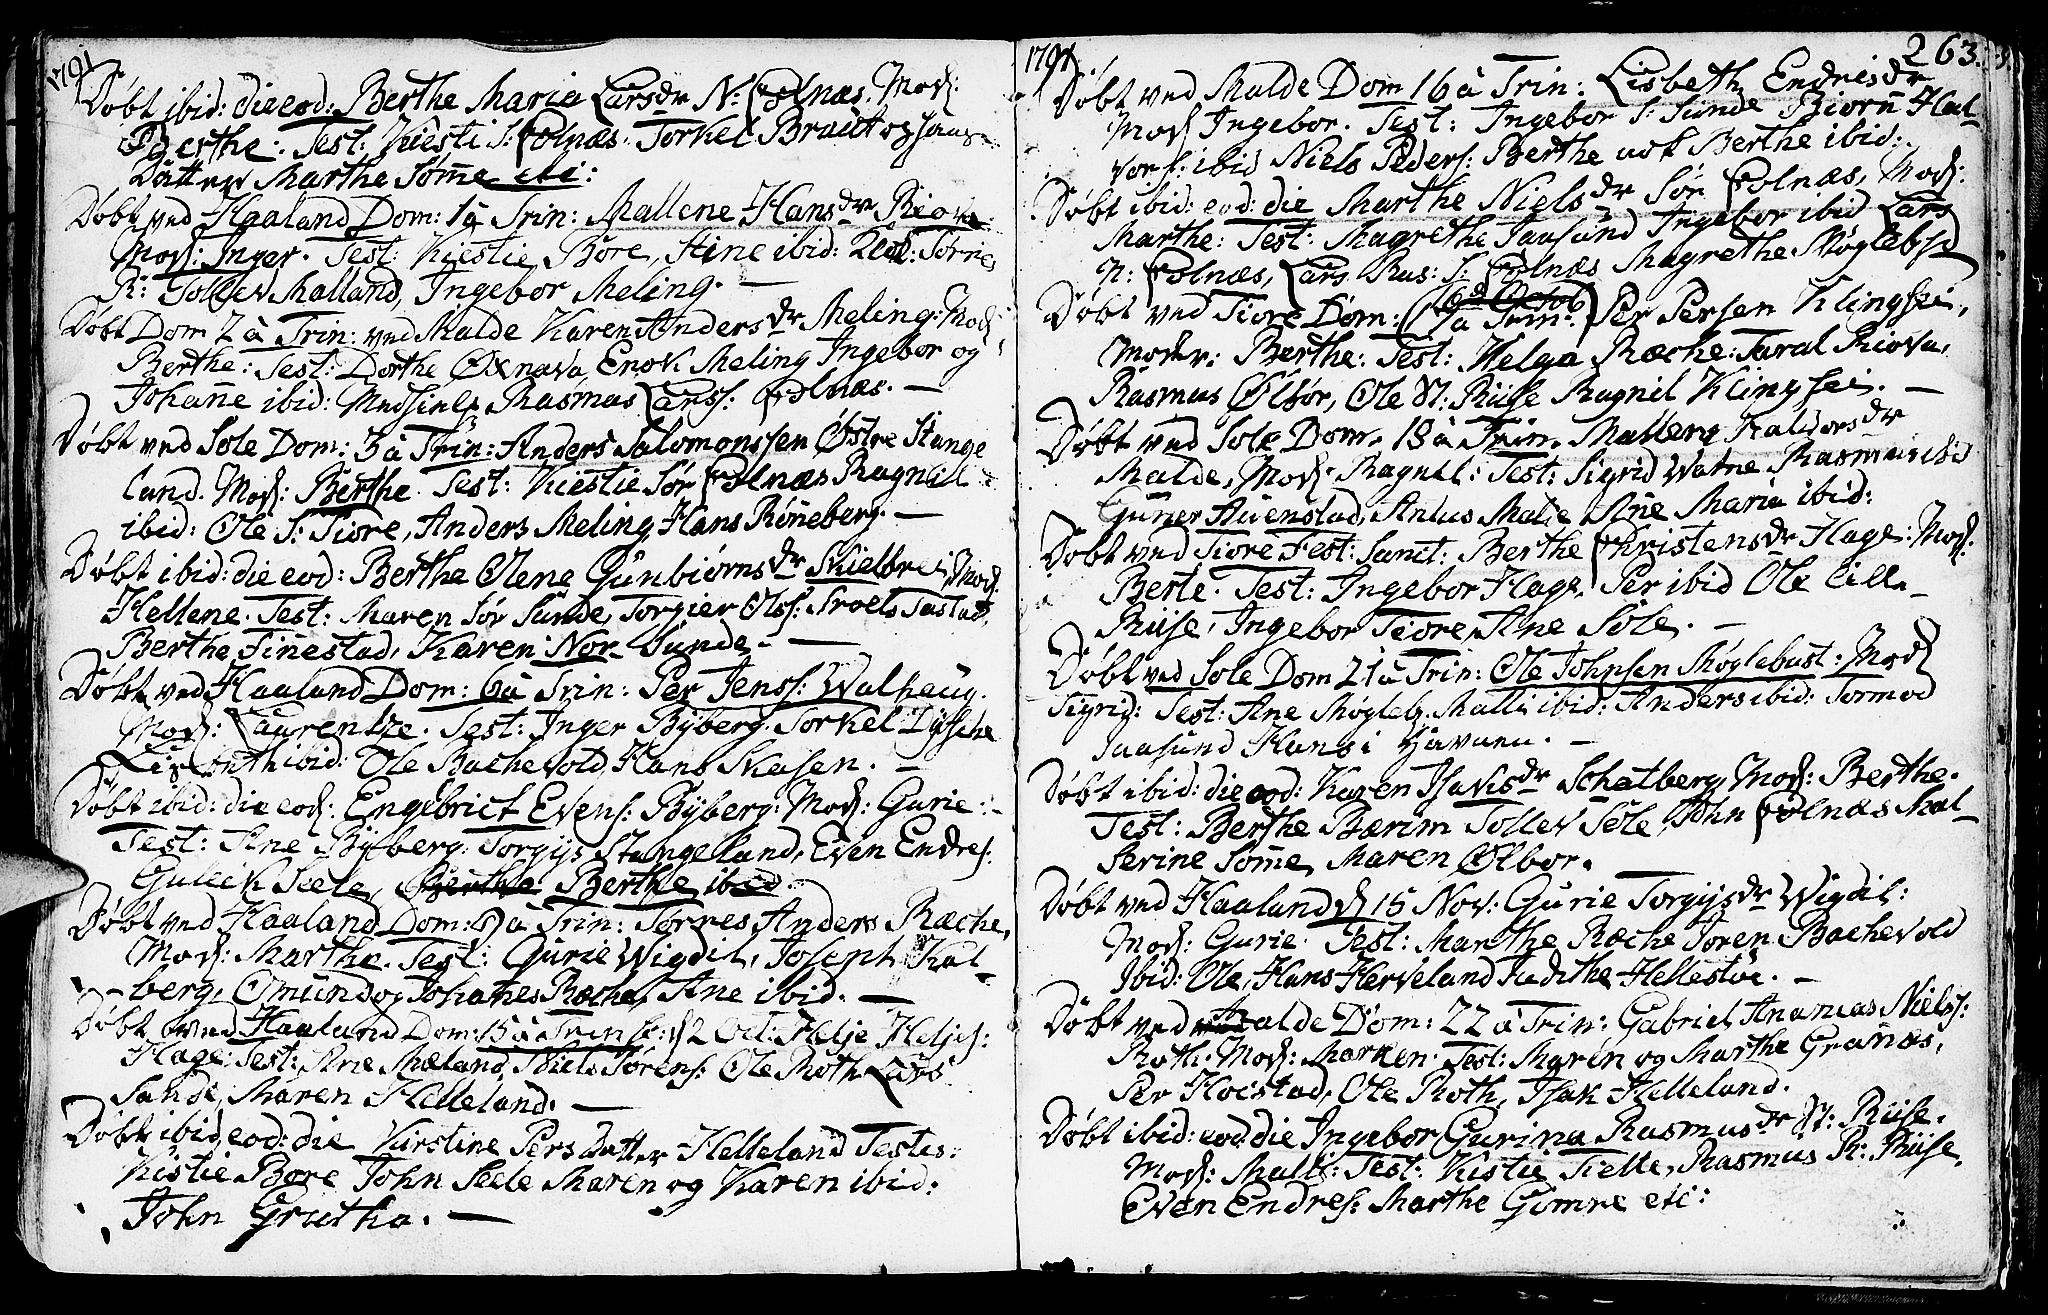 1791
Døbt ibid: die eod: Berthe Maria Larsdr N: Folnæs. Mod:
Berthe. Test: Kiesti S: Folnæs. Torkel Braut og hans
Datter Marthe Sømme ibi:
Døbt ved Haaland Dom: 1 à Trin: Mallene Hansdr Riova
Mod: Inger. Test: Kiestie Bore, Stine ibid:
R: Tollev Malland, Ingebor Meling. —
Døbt Dom 2 à Trin: ved Malde Karen Andersdr Meling: Mod:
Berthe: Test: Dorthe Øxnava Enok Meling Ingebor og
Johanne ibid: Rasmus Larss: Folnæs. —
Døbt ved Sole Dom: 3 à Trin: Anders Salomonssen Østre Stange
land. Mod: Berthe. Test: Kiestie Sør Folnæs Ragnill
ibid: Ole S: Tiore, Anders Meling, Hans Rønneberg. —
Døbt ibid: die eod: Berthe Olene Gunbiørnsdr Skielbrei, Mod:
Hellene. Test: Maren Sør Sunde, Torgier Olss: Troels Tastad,
Berthe Finnestad, Karen Nor Sunde. —
Døbt ved Haaland Dom: 6 à Trin: Per Jenss: Walheug.
Mod: Laurentze. Test: Inger Byberg. Torkel Dysche
Lisbeth ibid: Ole Bachevold, Hans Skasen. —
Døbt ibid: die eod: Engebrict Evens: Byberg: Mod: Gurie:
Test: Ane Byberg: Torgys Stangeland, Even Endres:
Gullik Seele, Berthe Berthe ibid
Døbt ved Haaland Dom: 9 à Trin: Tørres Anders Ræche,
Mod: Marthe. Test: Gurie Wigdil, Joseph Kal-
berg, Omund og Johannes Ræche, Ane ibid. —
Døbt ved Haaland Dom: 15 à Trin d: 2 Oct: Helje Heljes:
Hage: Test: Ane Mæland, Niels Sørens: Ole Roth Lars
Sande, Maren Helleland. —
Døbt ibid, eod: die Kirstine Pers Datter Helleland Testes:
Kistie Bore John Seele Maren og Karen ibid:
John Grutha. —
1791
263.
Døbt ved Malde Dom 16 à Trin: Lisbeth Endrisdr
Mod Ingebor. Test: Ingebor S: Sunde Biørn Hal-
vors: ibid Niels Peders: Berthe Berthe ibid:
Døbt ibid: eod: die Marthe Nielsdr Sør Folnæs, Mod:
Marthe: Test: Magrethe Jaasund Ingebor ibid Lars
N: Folnæs, Lars Rus: S: Folnæs Magrethe Møglebst
Døbt ved Tiore Dom: (Trin:) Per Persen Klingsei,
Moder: Berthe: Test: Helga Ræche: Taral Riova,
Rasmus Ølbør, Ole St: Riise Ragnil Klingsei. —
Døbt ved Sole Dom. 18 à Trin. Malleng Halvorsdr
Malde, Mod: Ragnil: Test: Sigrid Watne Rasmus ibid
Guner Auenstad, Anne Maria ibid:
Døbt ved Tiore Fest: Sanct: Berthe Christensdr Hage: Mod:
Berte. Test: Ingebor Hage, Per ibid Ole Lille
Riise, Ingebor Tiore, Ane Sole. —
Døbt ved Sole Dom 21 à Trin: Ole Johnsen Møglebust: Mod
Sigrid: Test: Ane Mögleb: Malli ibid: Anders ibid: Tormod
Jaasund Hans i Havnen. —
Døbt ibid: die eod: Karen Isakisdr Schatberg, Mod: Berthe.
Test: Berthe Bærim Tollev Sole, John Folnæs Mal-
Serine Sømme, Maren Ølbor.
Døbt ved Haaland d 15 Nov: Gurie Torgysdr Wigdil:
Mod: Gurie. Test: Marthe Ræche Joren Bachevold
Ibid: Ole, Hans Herveland Judithe Hellestøe. —
Døbt ved Malde Dom: 22 à Trin: Gabriel Ananias Nielss:
Roth. Mod: Marken. Test: Maren og Marthe Granæs,
Per Hoistad, Ole Roth, Isak Helleland.
Døbt ibid: eod die Ingebor Gurina Rasmusdr St: Riise.
Mod: Malli: Test: Kistie Tielte, Rasmus R: Riise,
Even Endres: Marthe Gimre etc: